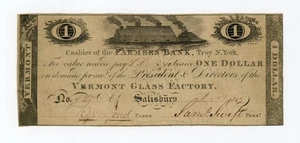 1
1
Cashier of the FARMERS BANK, Troy N. York.
For value received pay
or bearer ONE DOLLAR
on demand for acc. of the President & Directors of the
VERMONT GLASS FACTORY.
No.
Salisbury
Saml Swift
VERMONT
1 DOLLAR.